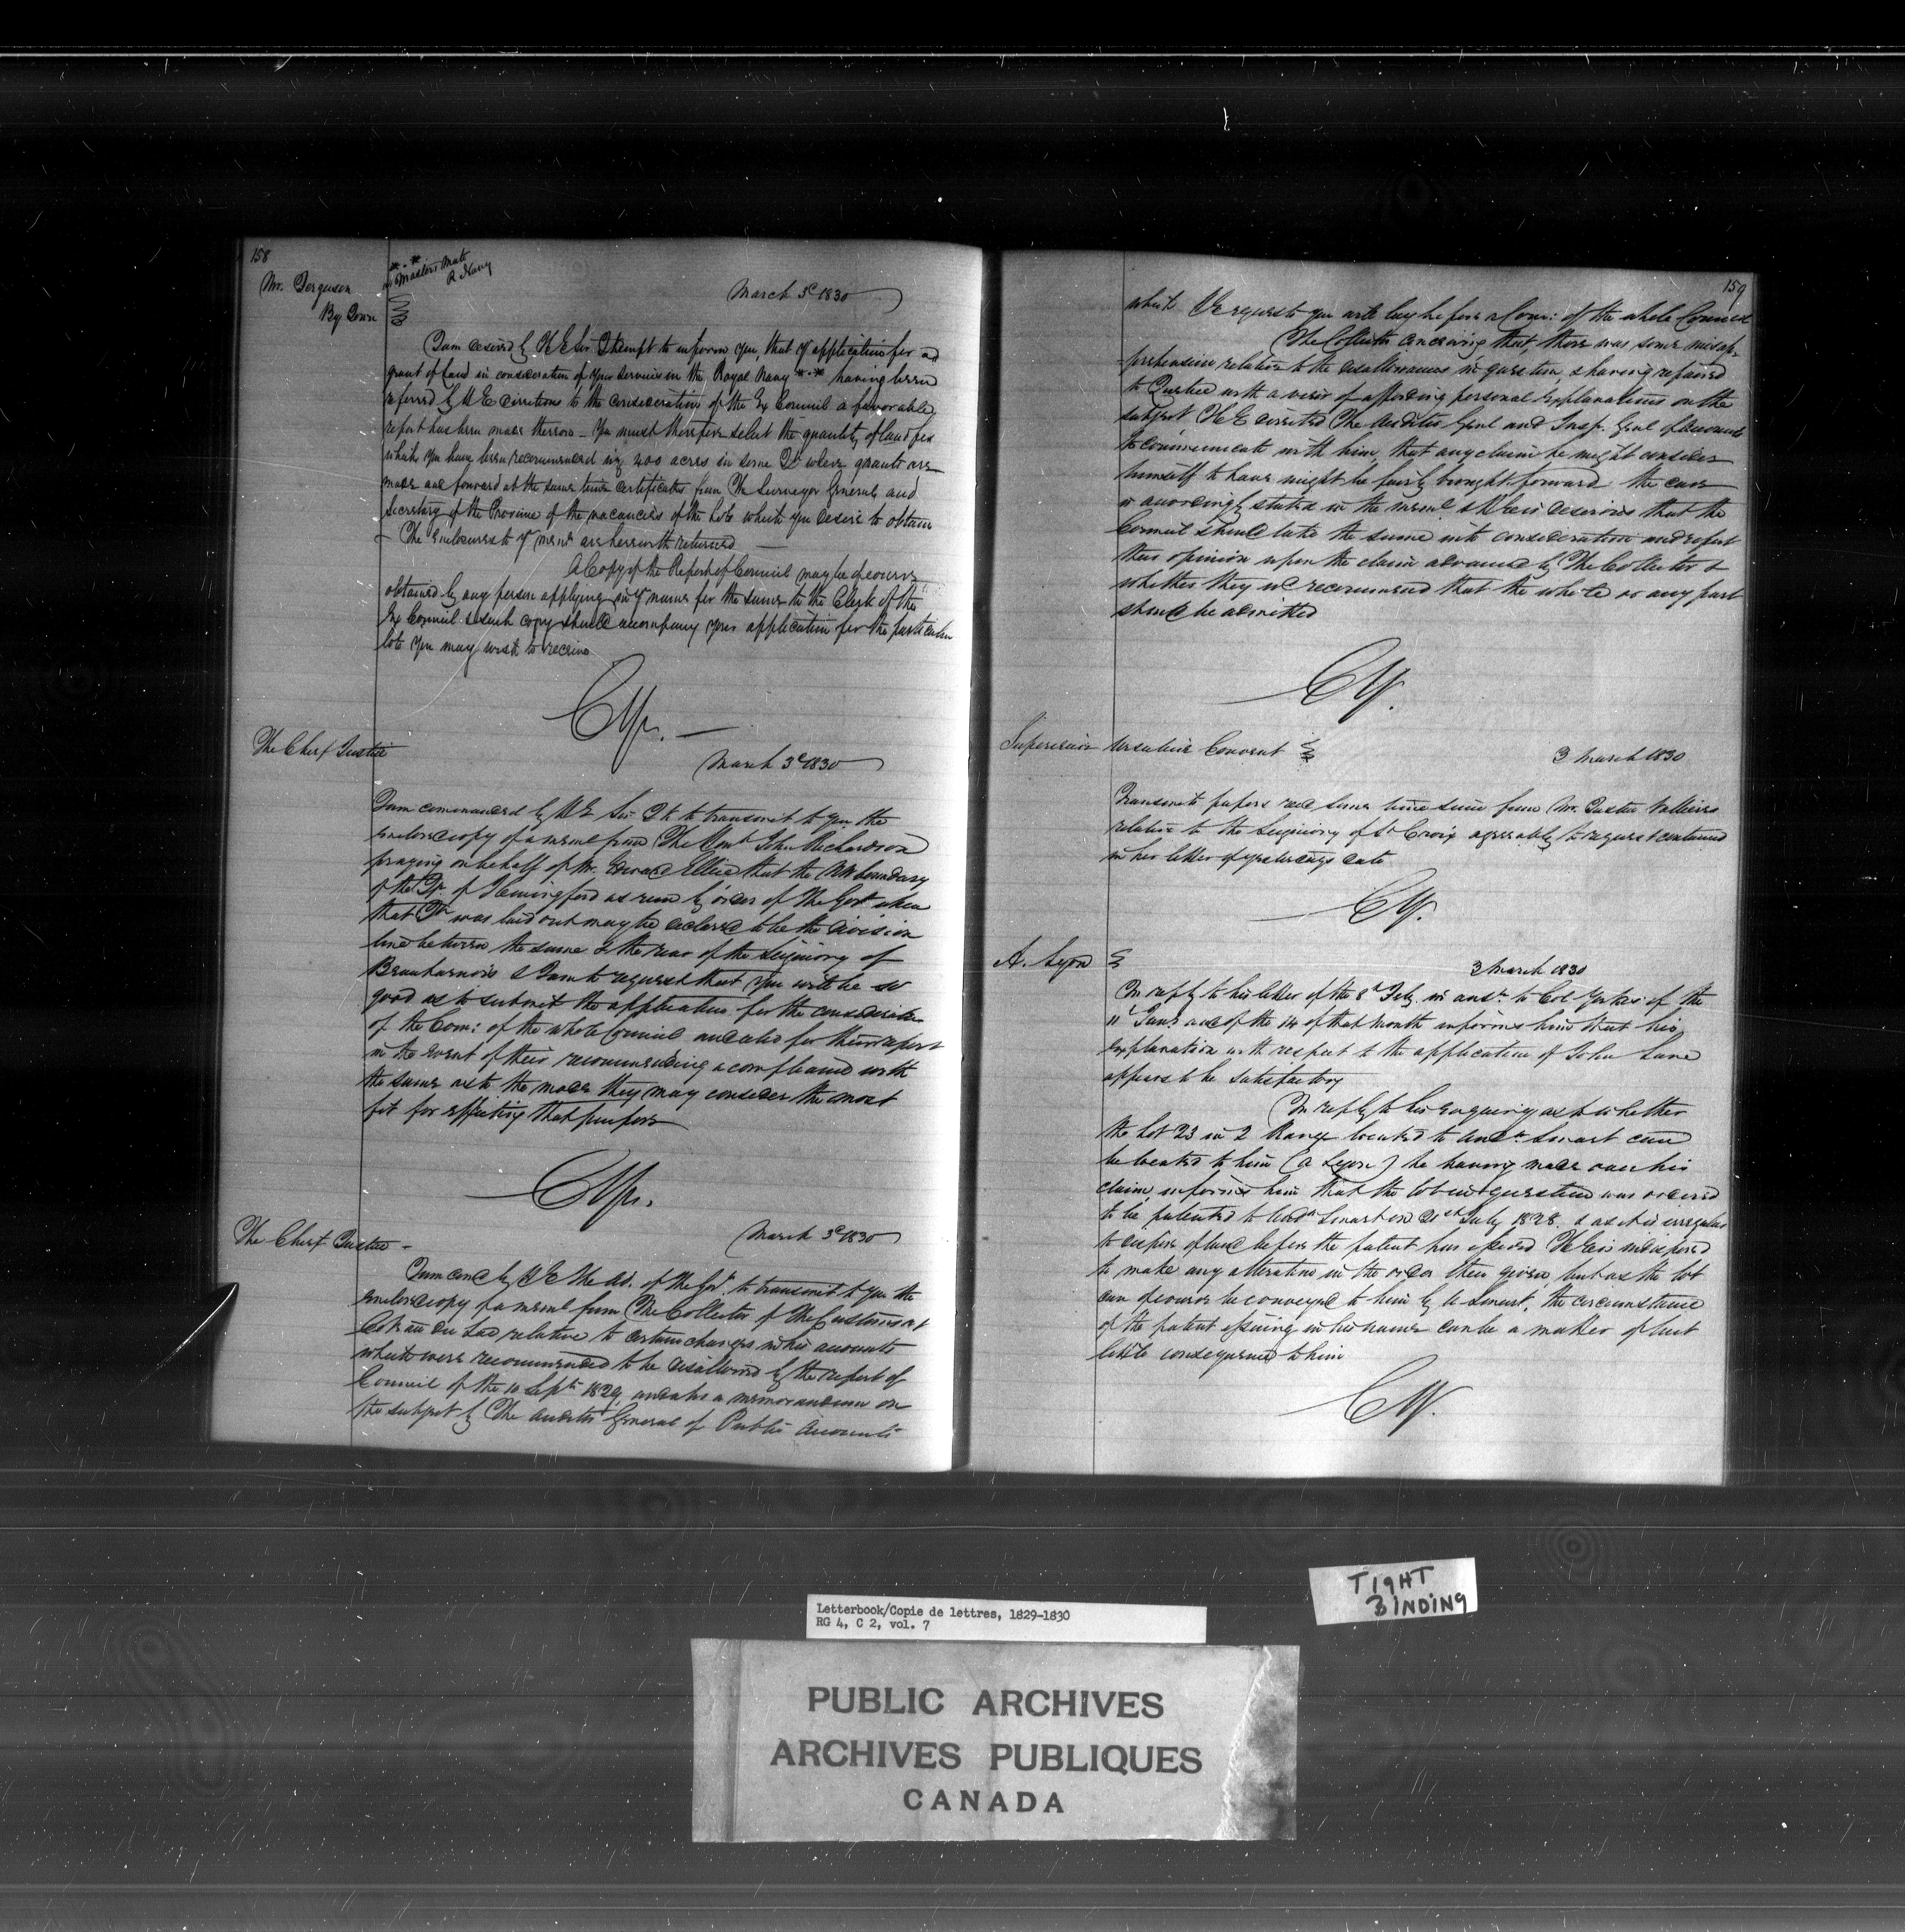 158
Mr. Ferguson
By Town
*.* as Masters Mate
R Navy
March 3d 1830
I am desired by H E Sir J Kempt to inform you, that yr application for a
grant of Land in consideration of your services in the Royal Navy *.* having been
referred by H E directions to the consideration of the Ex Council a favorable
report has been made thereon - You must therefore select the quantity of land for
which you have been recommended viz 400 acres in some Tp where grants are
made and forward at the same time certificates from The Surveyor General and
Secretary of the Province of the vacancies of the Lots which you desire to obtain
- The enclosures to yr meml are herewith returned -
A Copy of the Report of Council may be of course
obtained by any person applying in yr name for the same to the Clerk of the
Ex Council & such copy should accompany your application for the particular
lots you may wish to receive
CYr. -
The Chief Justice
March 3d 1830
I am commanded by H E Sir J K to transmit to you the
enclosed copy of a meml from The Honble John Richardson
praying on behalf of Mr. Edward Ellice that the NW boundary
of the Tp. of Hemingford as run by order of The Govt when
that Tp was laid out may be declared to be the division
line between the same & the rear of the Seigniory of
Beauharnois & I am to request that you will be so
good as to submit the application for the consideration
of the Com: of the whole Council and also for their report
in the event of their recommending a compliance with
the same as to the mode they may consider the most
fit for effecting that purpose
CYr.
The Chief Justice -
March 3d 1830
I am comd by H E The Ad. of the Govt. to transmit to you the
enclosed copy of a meml from The Collector of The Customs at
Coteau du Lac relative to certain charges in his accounts
which were recommended to be disallowed by the report of
Council of the 10 Septr 1829, and also a memorandum on
the subject by The Auditor General of Public Accounts
159
which I request you will lay before a Com: of the whole Council
The Collector conceiving that, there was some misap-
-prehension relative to the disallowances in question, & having repaired
to Quebec with a view of affording personal explanations on the
subject H E directed The Auditor Genl and Insp. Genl of accounts
to communicate with him, that any claim he might consider
himself to have might be fairly brought forward the case
is accordingly stated in the meml & H E is desirous that the
Council should take the same into consideration and report
their opinion upon the claim advanced by The Collector &
whether they wd recommend that the whole or any part
should be admitted
CY.
Superieure Ursuline Convent
3 March 1830
Transmits papers recd some time since from Mr. Justice Vallieres
relative to the Seigniory of St Croix agreeably to request contained
in her letter of yesterdays date
CY.
A. Lyon
3 March 1830
In reply to his letter of the 8th Feby in answr. to Col Yorke's of the
11th Jany and of the 14 of that month informs him that his
explanation with respect to the application of John Lane
appears to be satisfactory
In reply to his enquiry as to whether
the Lot 23 in 2 Range located to Andw Smart can
be located to him (A Lyon) he having made over his
claim, informs him that the lot in question was ordered
to be patented to Andw Smart on 21st July 1828. & as it is irregular
to dispose of land before the patent has issued H E is indisposed
to make any alteration in the order then given, but as the lot
can of course be conveyed to him by A Smart, the circumstance
of the patent issuing in his name can be a matter of but
little consequence to him
CY.
TIGHT
BINDING
Letterbook/Copie de lettres, 1829-1830
RG 4, C 2, vol. 7
PUBLIC ARCHIVES
ARCHIVES PUBLIQUES
CANADA